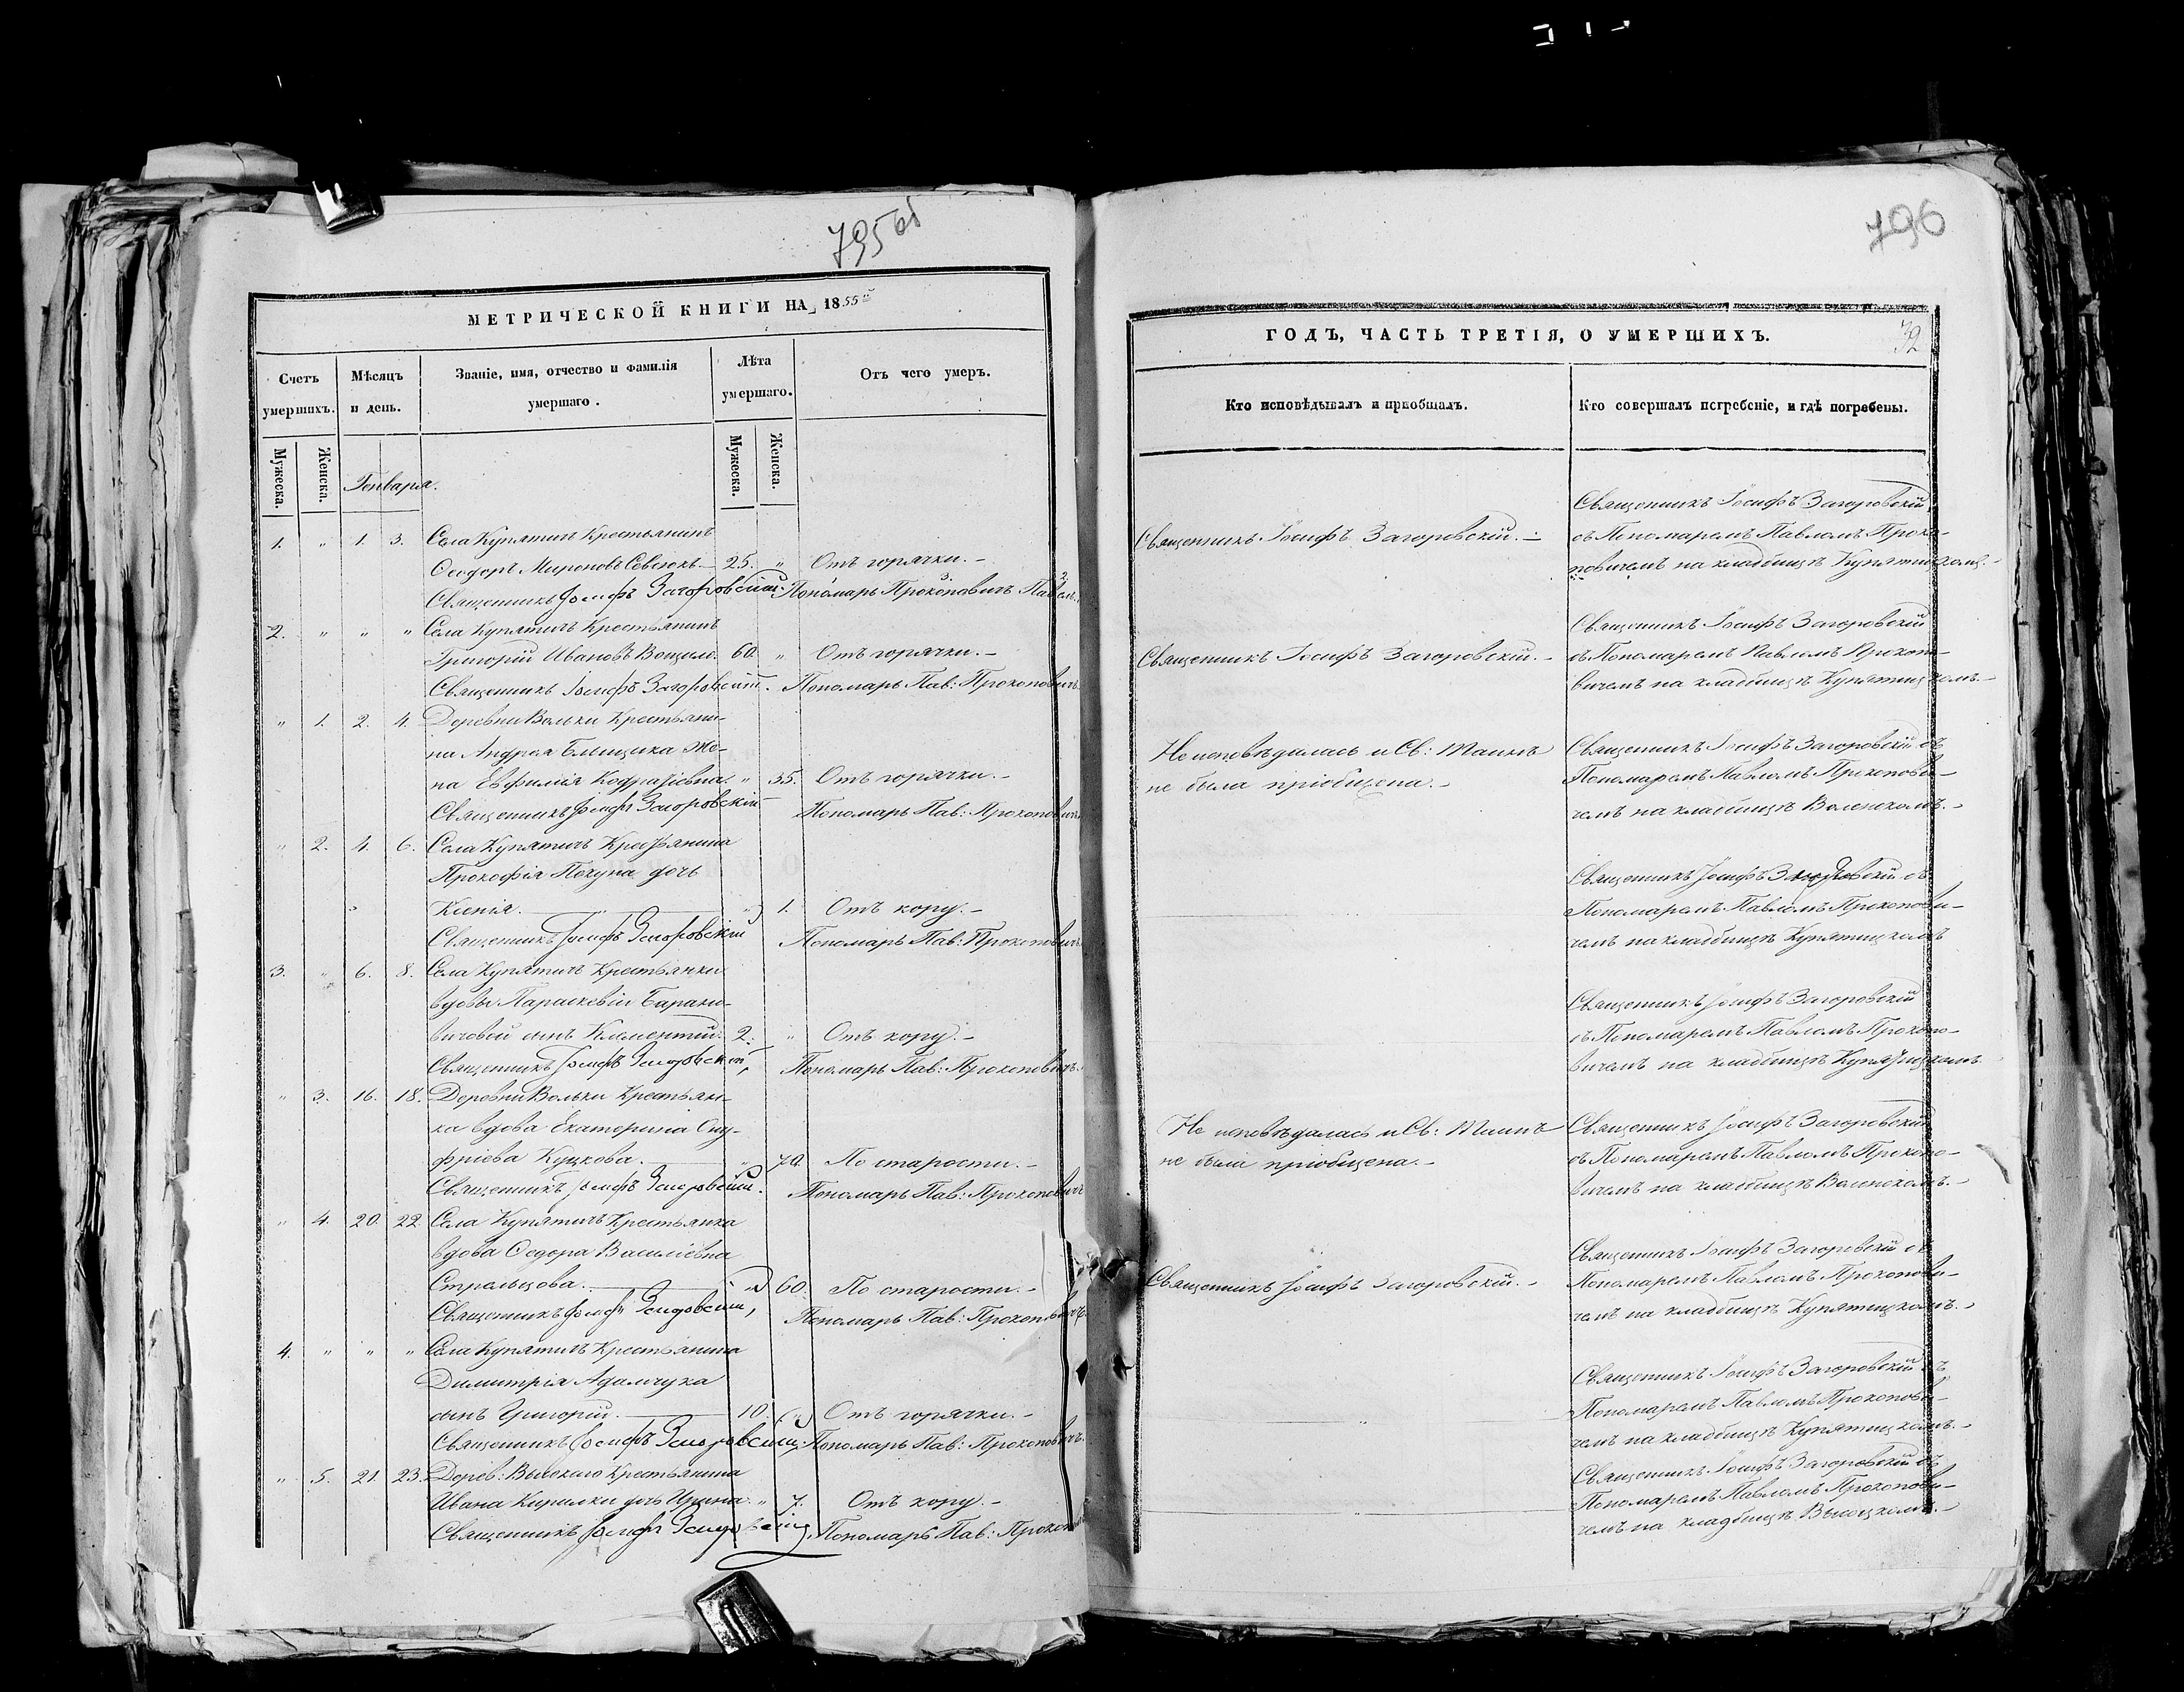 795 об
МЕТРИЧЕСКОЙ КНИГИ НА 1855й
Счетъ умершихъ.
Мѣсяцъ и день.
Званіе, имя, отчество и фамилія умершаго.
Лѣта умершаго.
Отъ чего умеръ.
Мужеска.
Женска.
Мужеска.
Женска.
Генваря.
1. " 1. 3. Села Купятичъ Крестьянинъ
Ѳеодоръ Мироновъ Севенюкъ 25. " Отъ горячки.
Священникъ Іосифъ Загоровскій. Пономарь Прокоповичъ Павелъ.
2. " " " Села Купятичъ Крестьянинъ
Григорій Ивановъ 60. " Отъ горячки.
Священникъ Іосифъ Загоровскій. Пономарь Пав: Прокоповичъ.
" 1. 2. 4. Деревни Вольки Крестьяни-
на Андрея жe-
на Евфимія " 35. Отъ горячки.
Священникъ Іосифъ Загоровскій Пономарь Пав: Прокоповичъ
" 2. 4. 6. Села Купятичъ Крестьянина
Прокофія дочь
Ксенія. " 1. Отъ кору.
Священникъ Іосифъ Загоровскій Пономарь Пав: Прокоповичъ
3. " 6. 8. Села Купятичъ Крестьянки
вдовы Параскевіи Барано-
вичовой сынъ Климентій. 2. " Отъ кору.
Священникъ Іосифъ Загоровскій, Пономарь Пав: Прокоповичъ.
" 3. 16. 18. Деревни Вольки Крестьян-
ка вдова Екатерина Ону-
фріева Куцкова. " 70. По старости.
Священникъ Іосифъ Загоровскій. Пономарь Пав: Прокоповичъ
" 4. 20. 22. Села Купятичъ Крестьянка
вдова Ѳеодора Василіевна
Стрельцова. " 60. По старости.
Священникъ Іосифъ Загоровскій, Пономарь Пав: Прокоповичъ.
4. " " " Села Купятичъ Крестьянина
Димитрія Адамчука
сынъ Григорій. 10. " Отъ горячки.
Священникъ Іосифъ Загоровскій, Пономарь Пав: Прокоповичъ.
" 5. 21. 23. Дерев: Высокаго Крестьянина
Ивана Кирилки дочь Ирина. " 7. Отъ кору.
Священникъ Іосифъ Загоровскій, Пономарь Пав: Прокоп
796
ГОДЪ, ЧАСТЬ ТРЕТІЯ, О УМЕРШИХЪ.
32
Кто исповѣдывалъ и пріобщалъ.
Кто совершалъ погребеніе, и гдѣ погребены.
Священникъ Іосифъ Загоровскій
Священникъ Іосифъ Загоровскій. съ Пономаремъ Павломъ Проко-
повичемъ на кладбищѣ Купятицкомъ.
Священникъ Іосифъ Загоровскій
Священникъ Іосифъ Загоровскій. съ Пономаремъ Павломъ Прокопо-
вичемъ на кладбищѣ Купятицкомъ.
Не исповѣдалась и Св: Таинъ Священникъ Іосифъ Загоровскій съ
не была пріобщена. Пономаремъ Павломъ Прокопови-
чемъ на кладбищѣ Воленскомъ.
Священникъ Іосифъ Загоровскій съ
Пономаремъ Павломъ Прокопови-
чемъ на кладбищѣ Купятицкомъ
Священникъ Іосифъ Загоровскій
съ Пономаремъ Павломъ Прокопо-
вичемъ на кладбищѣ Купятицкомъ
Не исповѣдалась и Св: Таинъ Священникъ Іосифъ Загоровскій
не была пріобщена. съ Пономаремъ Павломъ Прокопо-
вичемъ на кладбищѣ Воленскомъ.
Священникъ Іосифъ Загоровскій съ
Священникъ Іосифъ Загоровскій. Пономаремъ Павломъ Прокопови-
чемъ на кладбищѣ Купятицкомъ.
Священникъ Іосифъ Загоровскій съ
Пономаремъ Павломъ Прокопови-
чемъ на кладбищѣ Купятицкомъ.
Священникъ Іосифъ Загоровскій съ
Пономаремъ Павломъ Прокопови-
чемъ на кладбищѣ Высоцкомъ.